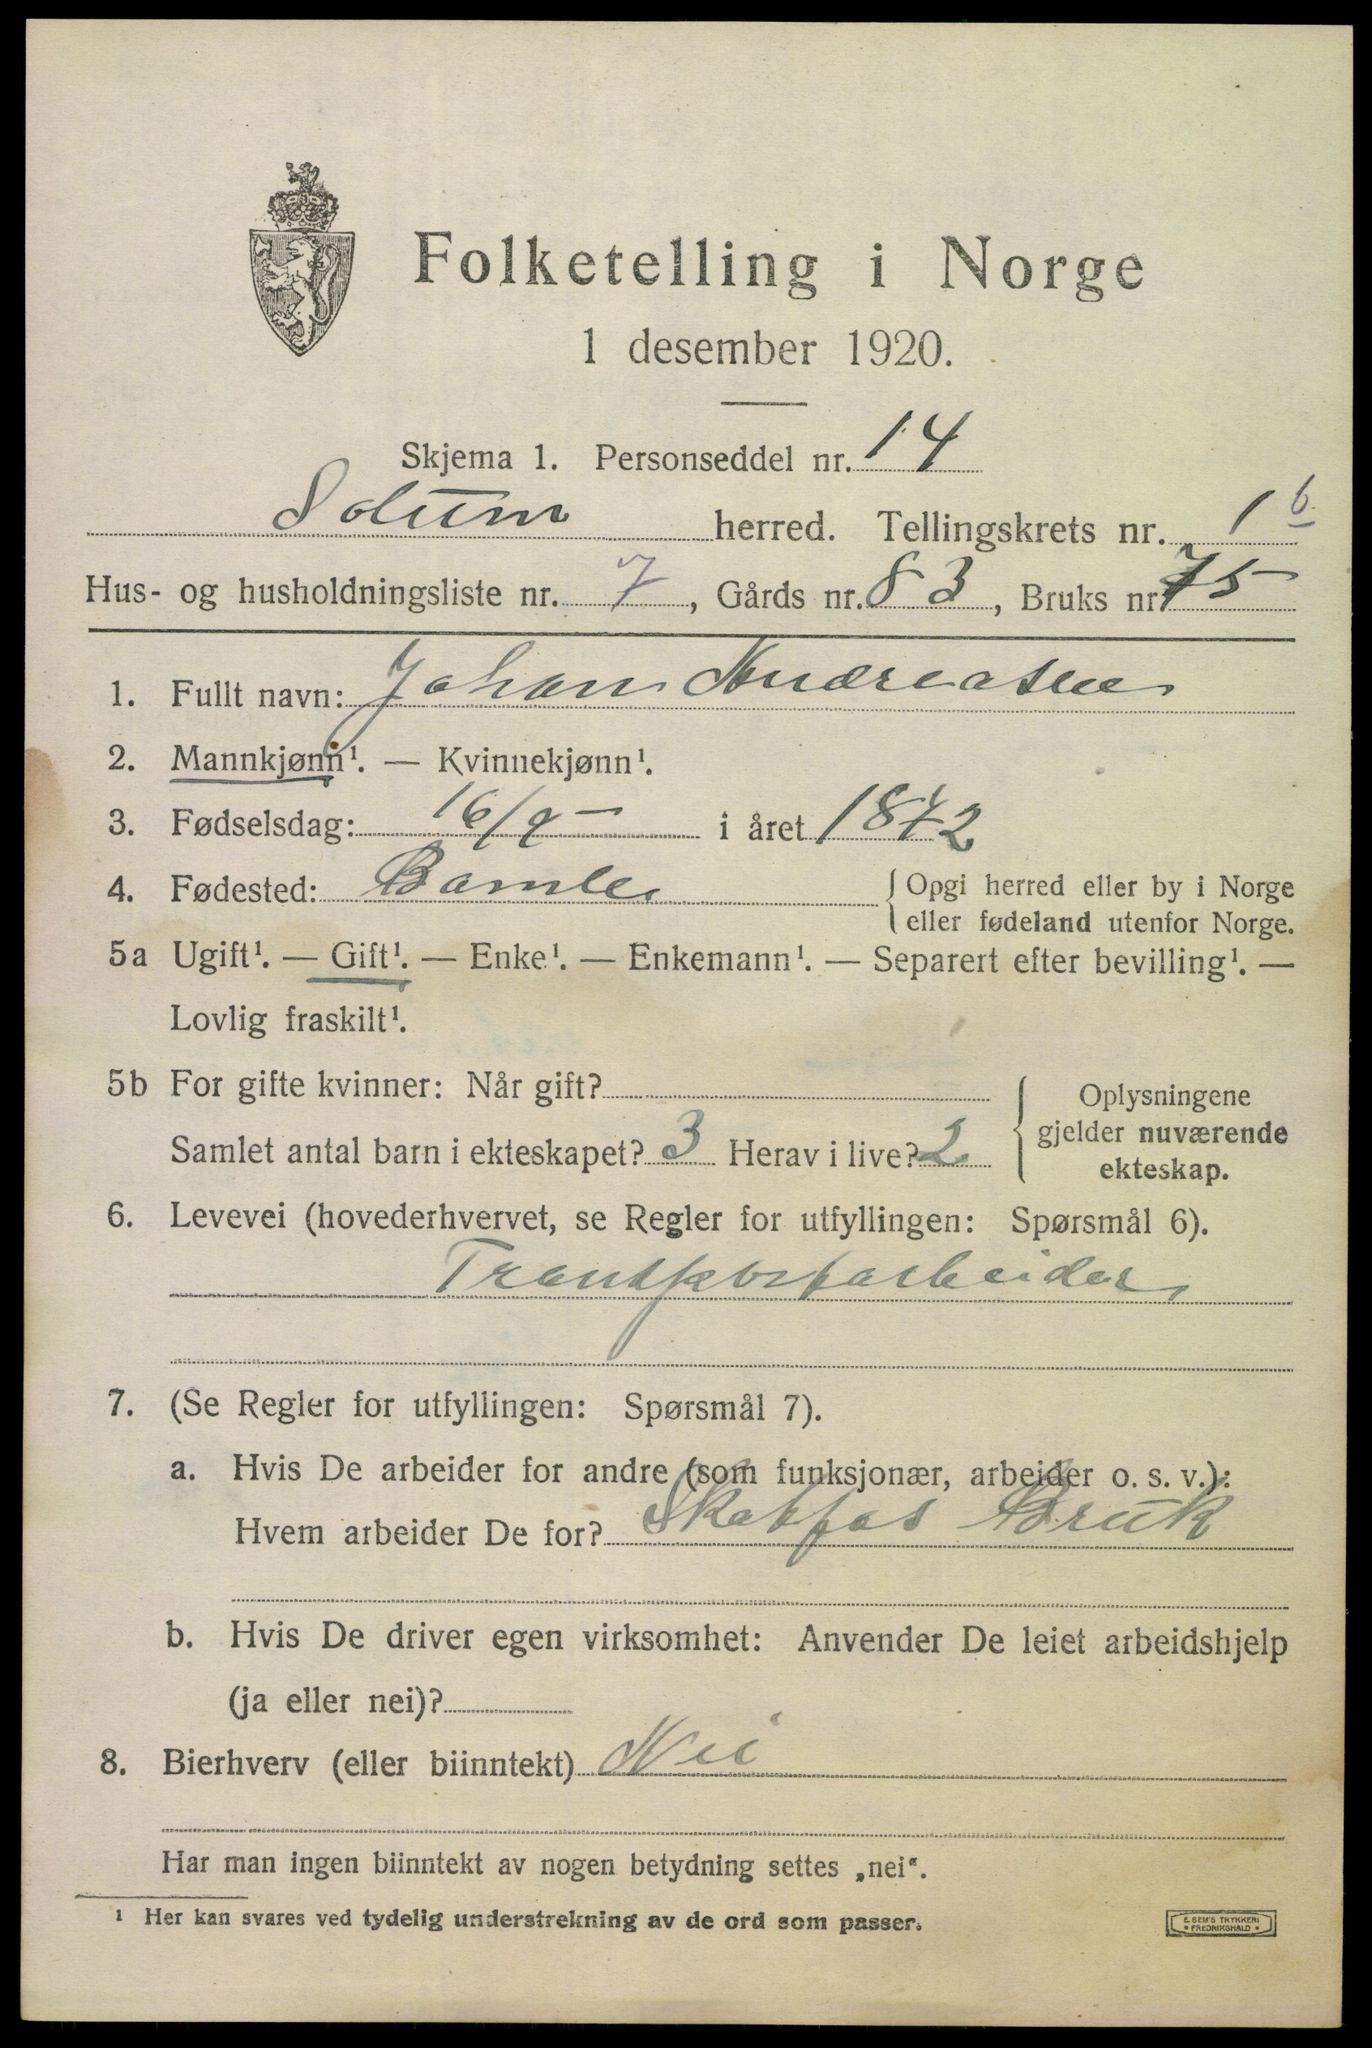 Folketelling i Norge
1 desember 1920.
Skjema 1. Personseddel nr. 14
Solum herred. Tellingskrets nr. 1 b
Hus- og husholdningsliste nr. 7, Gårds nr. 83, Bruks nr. 75
1. Fullt navn: Johan Andreasen
2. Mannkjønn¹. — Kvinnekjønn¹.
3. Fødselsdag: 16/9 – i året 1872
4. Fødested: Bamle
Opgi herred eller by i Norge
eller fødeland utenfor Norge.
5a Ugift¹. — Gift¹. — Enke¹. — Enkemann¹. — Separert efter bevilling¹. —
Lovlig fraskilt¹.
5b For gifte kvinner: Når gift?
Samlet antal barn i ekteskapet? 3 Herav i live? 2
Oplysningene
gjelder nuværende
ekteskap.
6. Levevei (hovederhvervet, se Regler for utfyllingen: Spørsmål 6).
Transportarbeider
7. (Se Regler for utfyllingen: Spørsmål 7).
a. Hvis De arbeider for andre (som funksjonær, arbeider o. s. v.):
Hvem arbeider De for? Skotfos Bruk
b. Hvis De driver egen virksomhet: Anvender De leiet arbeidshjelp
(ja eller nei)?
8. Bierhverv (eller biinntekt) Nei
Har man ingen biinntekt av nogen betydning settes „nei“.
¹ Her kan svares ved tydelig understrekning av de ord som passer.
E. SEM'S TRYKKERI
FREDRIKSHALD